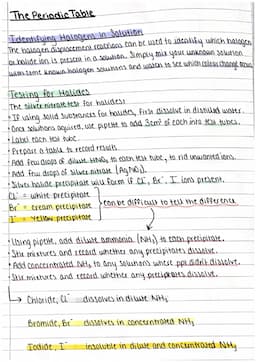 The Periodic Table
Identifying Halogens in Solution
The halogen displacement reactions can be used to identify which halogen
or halide ion is present in a solution. Simply mix your unknown solution
with some known halogen solutions and watch to see which colour change occurs
Testing for Halides
The silver nitrate test for halides:
• If using solid substances for halides, first dissolve in distilled water.
• Once solutions aquired, use pipette to add 3cm³ of each into test tubes.
• Label each test tube.
• Prepare a table to record results
• Add few drops of dilute HNO₃ to each test tube, to rid unwanted ions.
• Add few drops of silver nitrate (AgNO₃).
• Silver halide precipitate will form if Cl⁻, Br⁻, I⁻ ions present.
Cl⁻ = white precipitate
Br⁻ = cream precipitate
I⁻ = Yellow precipitate
can be difficult to tell the difference
• Using pipette, add dilute ammonia (NH₃) to each precipitate.
• Stir mixtures and record whether any precipitates dissolve.
• Add concentrated NH₃ to any solutions where ppt didn't dissolve.
• Stir mixtures and record whether any precipitates dissolve.
↳ Chloride, Cl⁻ dissolves in dilute NH₃
Bromide, Br⁻ dissolves in concentrated NH₃
Iodide, I⁻ insoluble in dilute and concentrated NH₃